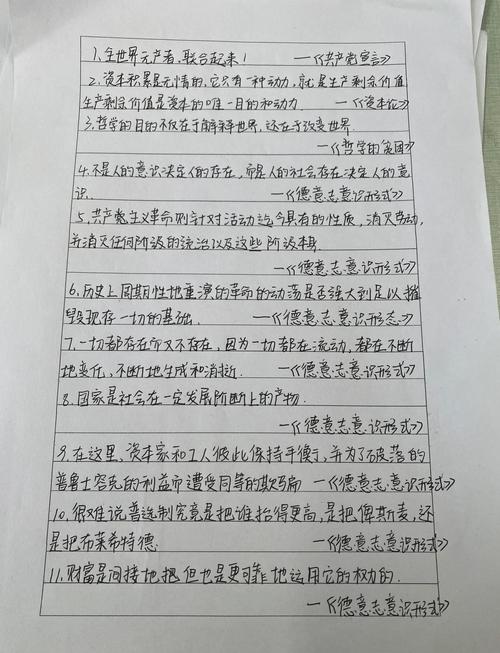 1.全世界无产者,联合起来! —《共产党宣言》
2.资本积累是无情的,它只有一种动力,就是生产剩余价值
生产剩余价值是资本的唯一目的和动力. —《资本论》
3.哲学的目的不仅在于解释世界,还在于改变世界.
—《哲学的贫困》
4.不是人的意识决定人的存在,而是人的社会存在决定人的意
识. —《德意志意识形式》
5.共产党主义革命则针对活动迄今具有的性质,消灭劳动,
并消灭任何阶级的统治以及这些阶级本身.
—《德意志意识形式》
6.历史上周期性地重演的革命的动荡是否强大到足以摧
毁现存一切的基础. —《德意志意识形态》
7.一切都存在而又不存在,因为一切都在流动,都在不断
地变化,不断地生成和消逝. —《德意志意识形式》
8.国家是社会在一定发展阶段上的产物.
—《德意志意识形式》
9.在这里、资本家和工人彼此保持平衡,并为了破落的
普鲁士容克的利益而遭受同等的欺骗 —《德意志意识形式》
10.很难说普选制究竟是把谁抬得更高,是把俾斯麦,还
是把布莱希特德. —《德意志意识形式》
11.财富是间接地把但也是更可靠地运用它的权力的.
—《德意志意识形式》